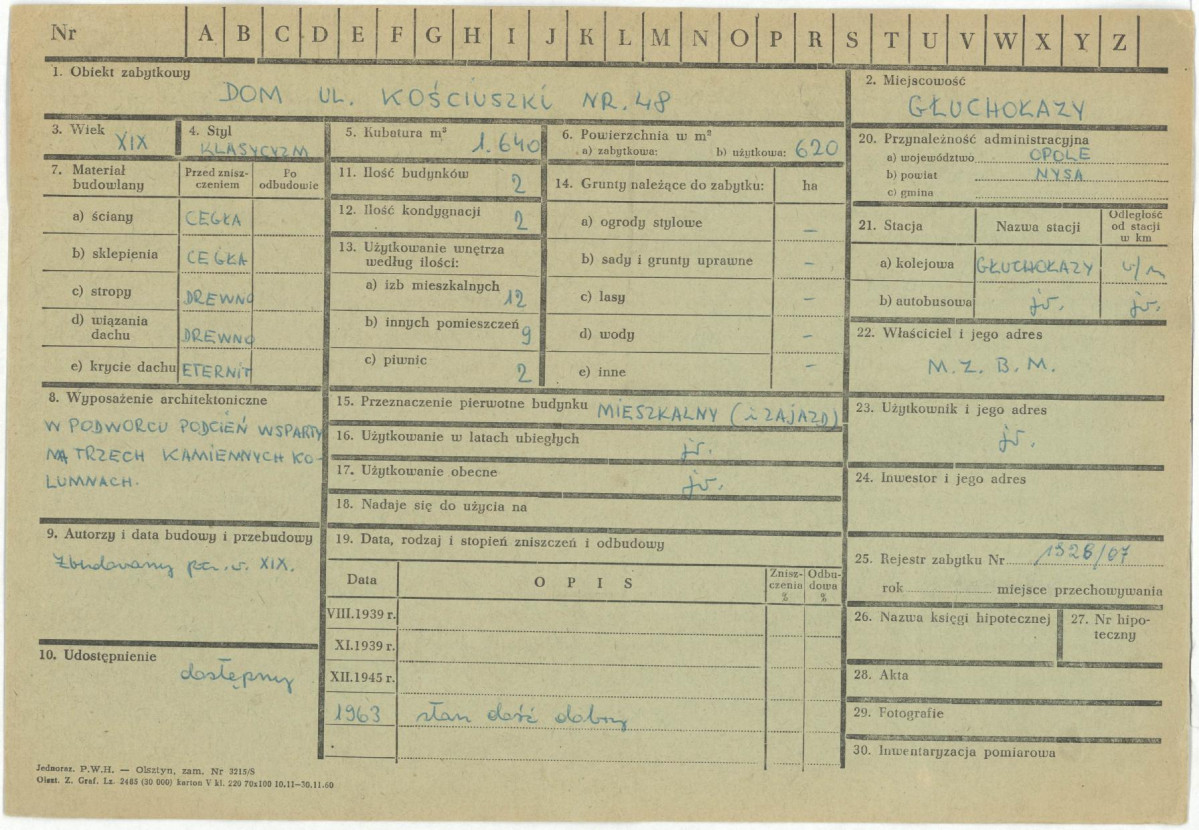 Nr A B C D E F G H I J K L M N O P R S T U V W X Y Z
1. Obiekt zabytkowy
DOM UL. KOŚCIUSZKI NR. 48
2. Miejscowość
GŁUCHOŁAZY
3. Wiek
XIX
4. Styl
KLASYCYZM
5. Kubatura m³
1.640
6. Powierzchnia w m²
a) zabytkowa: b) użytkowa: 620
7. Materiał budowlany
Przed zniszczeniem
Po odbudowie
a) ściany CEGŁA
b) sklepienia CEGŁA
c) stropy DREWNO
d) wiązania dachu DREWNO
e) krycie dachu ETERNIT
8. Wyposażenie architektoniczne
W PODWORCU PODCIEŃ WSPARTY
NA TRZECH KAMIENNYCH KO-
LUMNACH.
9. Autorzy i data budowy i przebudowy
Zbudowany pocz. w. XIX.
10. Udostępnienie
dostępny
11. Ilość budynków 2
12. Ilość kondygnacji 2
13. Użytkowanie wnętrza
według ilości:
a) izb mieszkalnych 12
b) innych pomieszczeń 9
c) piwnic 2
14. Grunty należące do zabytku: ha
a) ogrody stylowe –
b) sady i grunty uprawne –
c) lasy –
d) wody –
e) inne –
15. Przeznaczenie pierwotne budynku MIESZKALNY (i ZAJAZD)
16. Użytkowanie w latach ubiegłych jw.
17. Użytkowanie obecne jw.
18. Nadaje się do użycia na
19. Data, rodzaj i stopień zniszczeń i odbudowy
Data OPIS Zniszczenia % Odbudowa %
VIII.1939 r.
XI.1939 r.
XII.1945 r.
1963 stan dość dobry
20. Przynależność administracyjna
a) województwo OPOLE
b) powiat NYSA
c) gmina
21. Stacja Nazwa stacji Odległość od stacji w km
a) kolejowa GŁUCHOŁAZY w/m
b) autobusowa jw. jw.
22. Właściciel i jego adres
M. Z. B. M.
23. Użytkownik i jego adres
jw.
24. Inwestor i jego adres
25. Rejestr zabytku Nr 1926/67
rok miejsce przechowywania
26. Nazwa księgi hipotecznej
27. Nr hipo-
teczny
28. Akta
29. Fotografie
30. Inwentaryzacja pomiarowa
Jednoraz. P.W.H. — Olsztyn, zam. Nr 3215/S
Olszt. Z. Graf. Lz. 2485 (30 000) karton V kl. 220 70x100 10.11—30.11.60